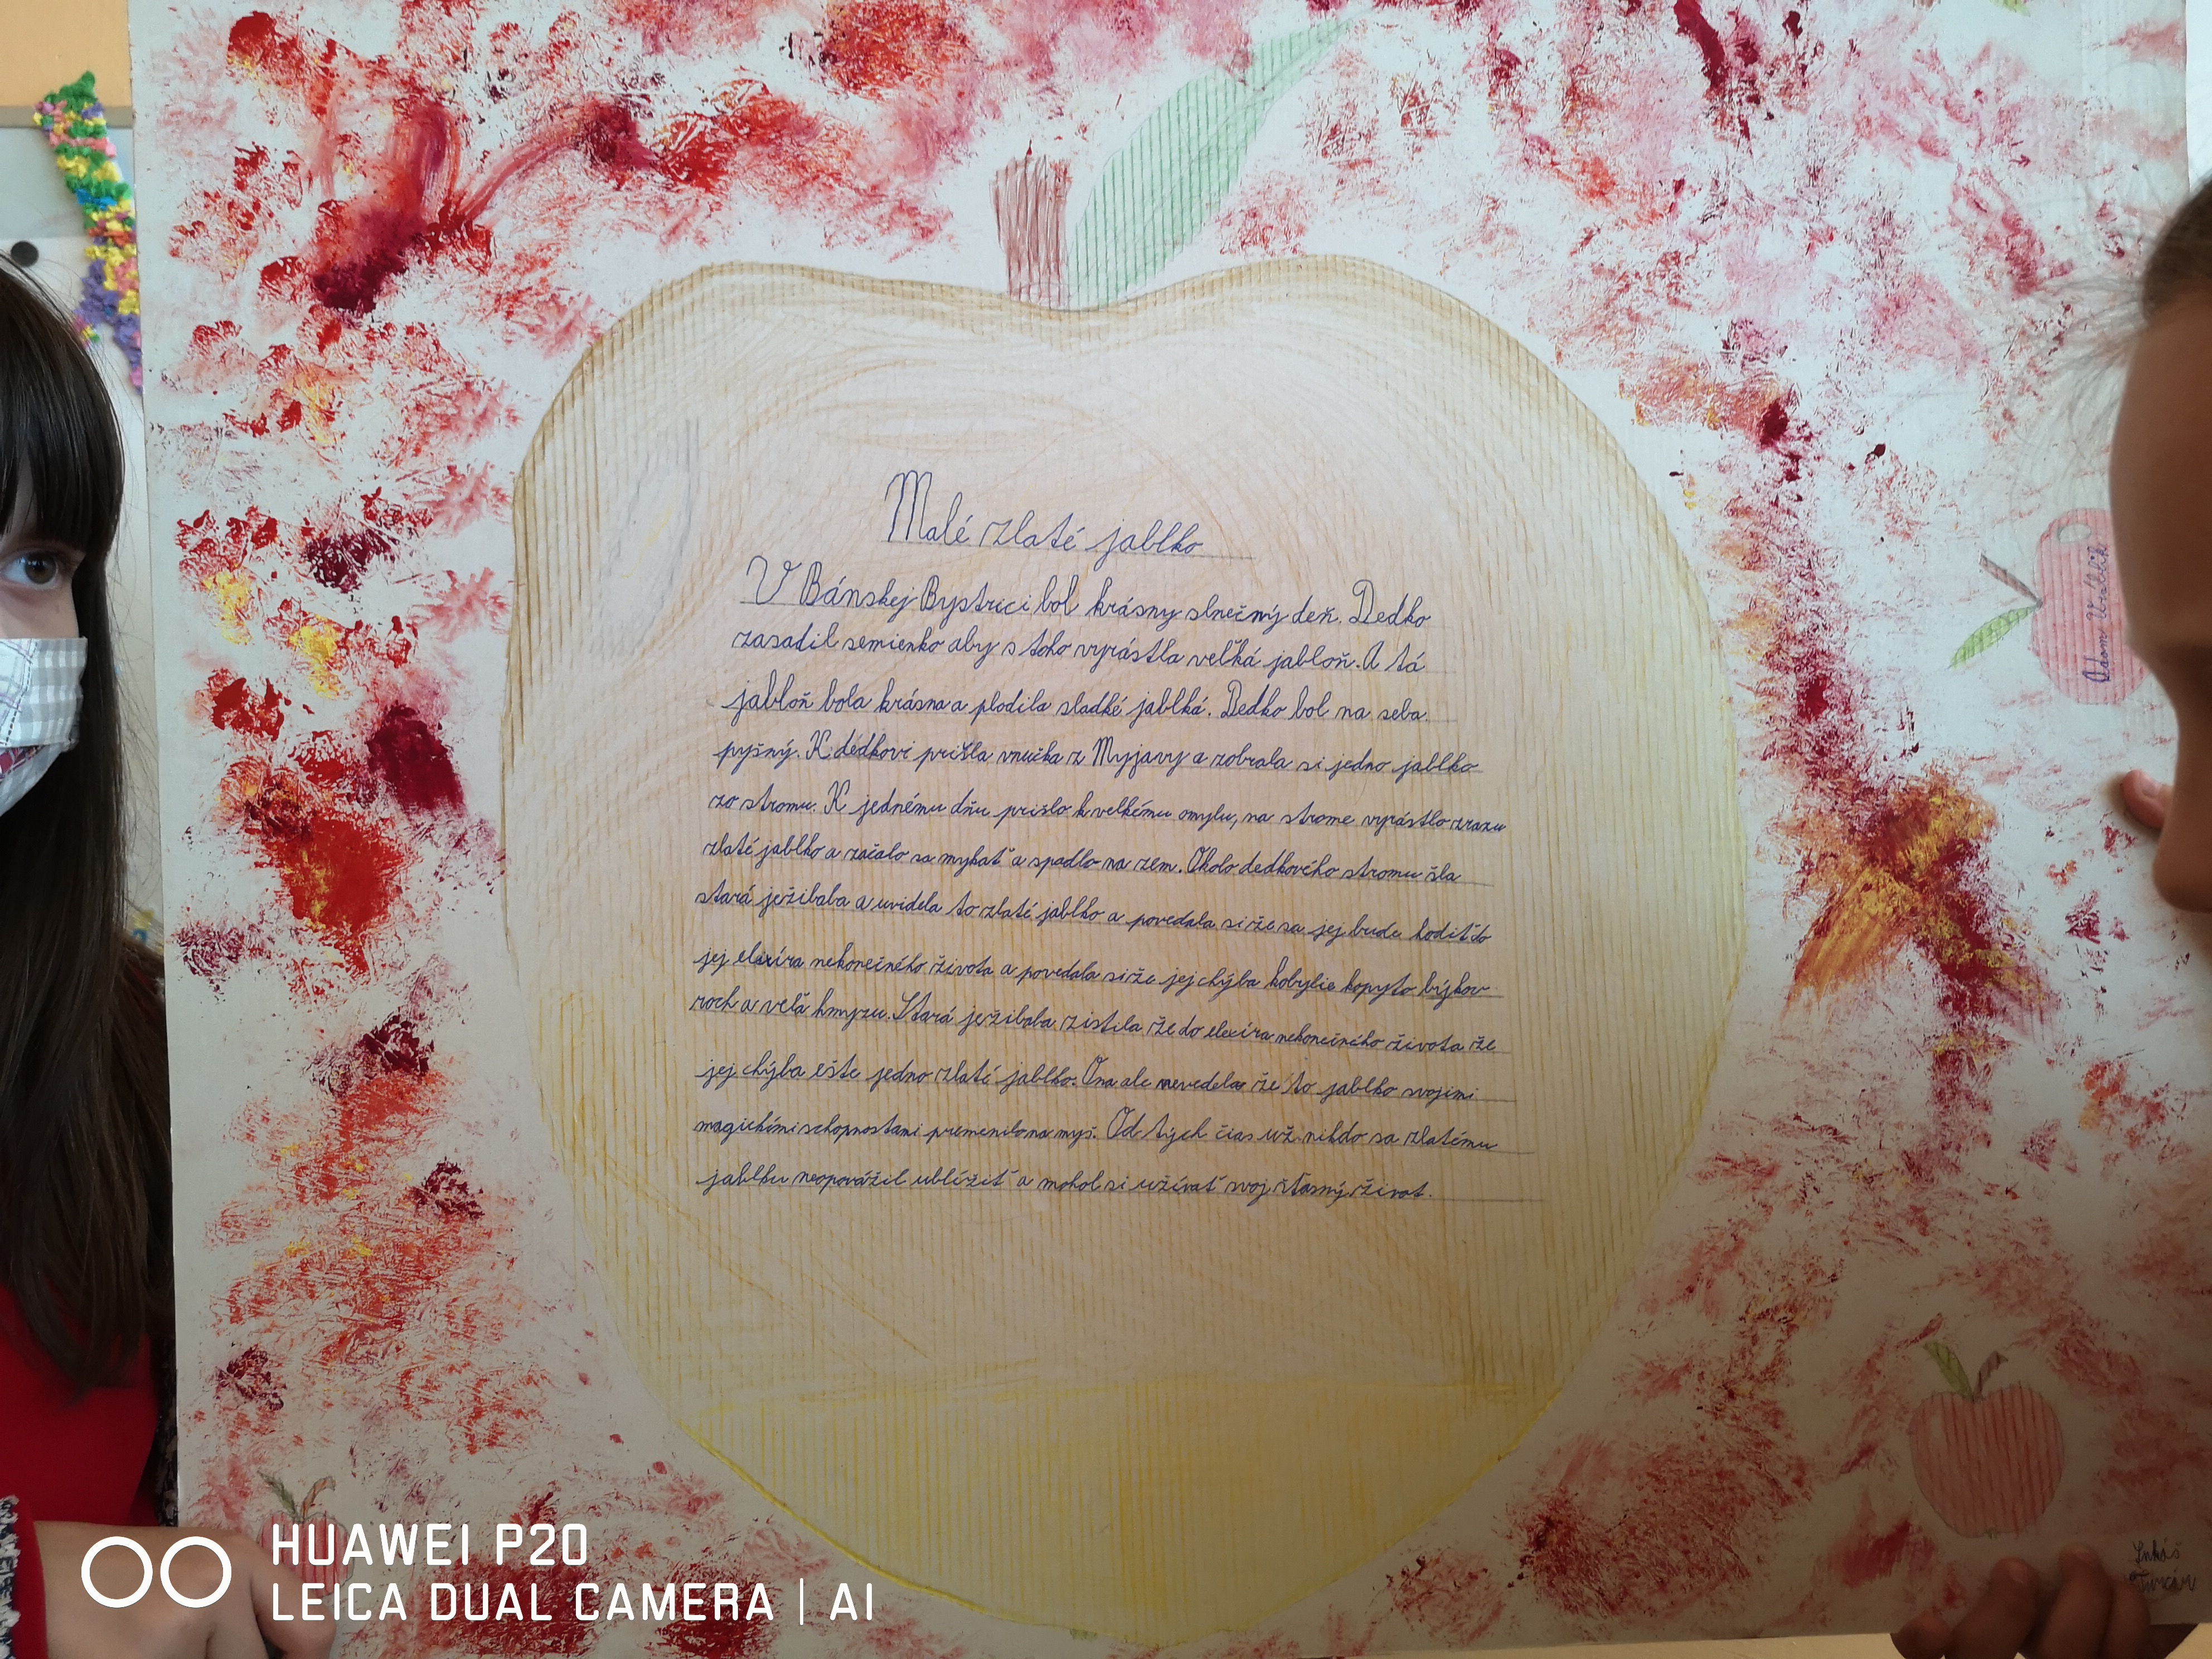 Malé zlaté jablko
V Bánskej Bystrici bol krásny slnečný deň. Dedko
zasadil semienko aby s toho vyrástla veľká jabloň. A tá
jabloň bola krásna a plodila sladké jablká. Dedko bol na seba
pyšný. K dedkovi prišla vnučka z Myjavy a zobrala si jedno jablko
zo stromu. K jednému dňu prišlo k velkému omylu, na strome vyrástlo zrazu
zlaté jablko a začalo sa mykať a spadlo na zem. Okolo dedkového stromu šla
stará ježibaba a uvidela to zlaté jablko a povedala si že sa jej bude hodiť do
jej elixíra nekonečného života a povedala si že jej chýba kobylie kopyto býkov
roch a veľa hmyzu. Stará ježibaba zistila že do elexíra nekonečného života že
jej chýba ešte jedno zlaté jablko. Ona ale nevedela že to jablko svojimi
magickími schopnostami premenilo na myš. Od tých čias už nikdo sa zlatému
jablku neopovážil ublížiť a mohol si užívať svoj šťasný život.
Adam
Lukáš
HUAWEI P20
LEICA DUAL CAMERA | AI